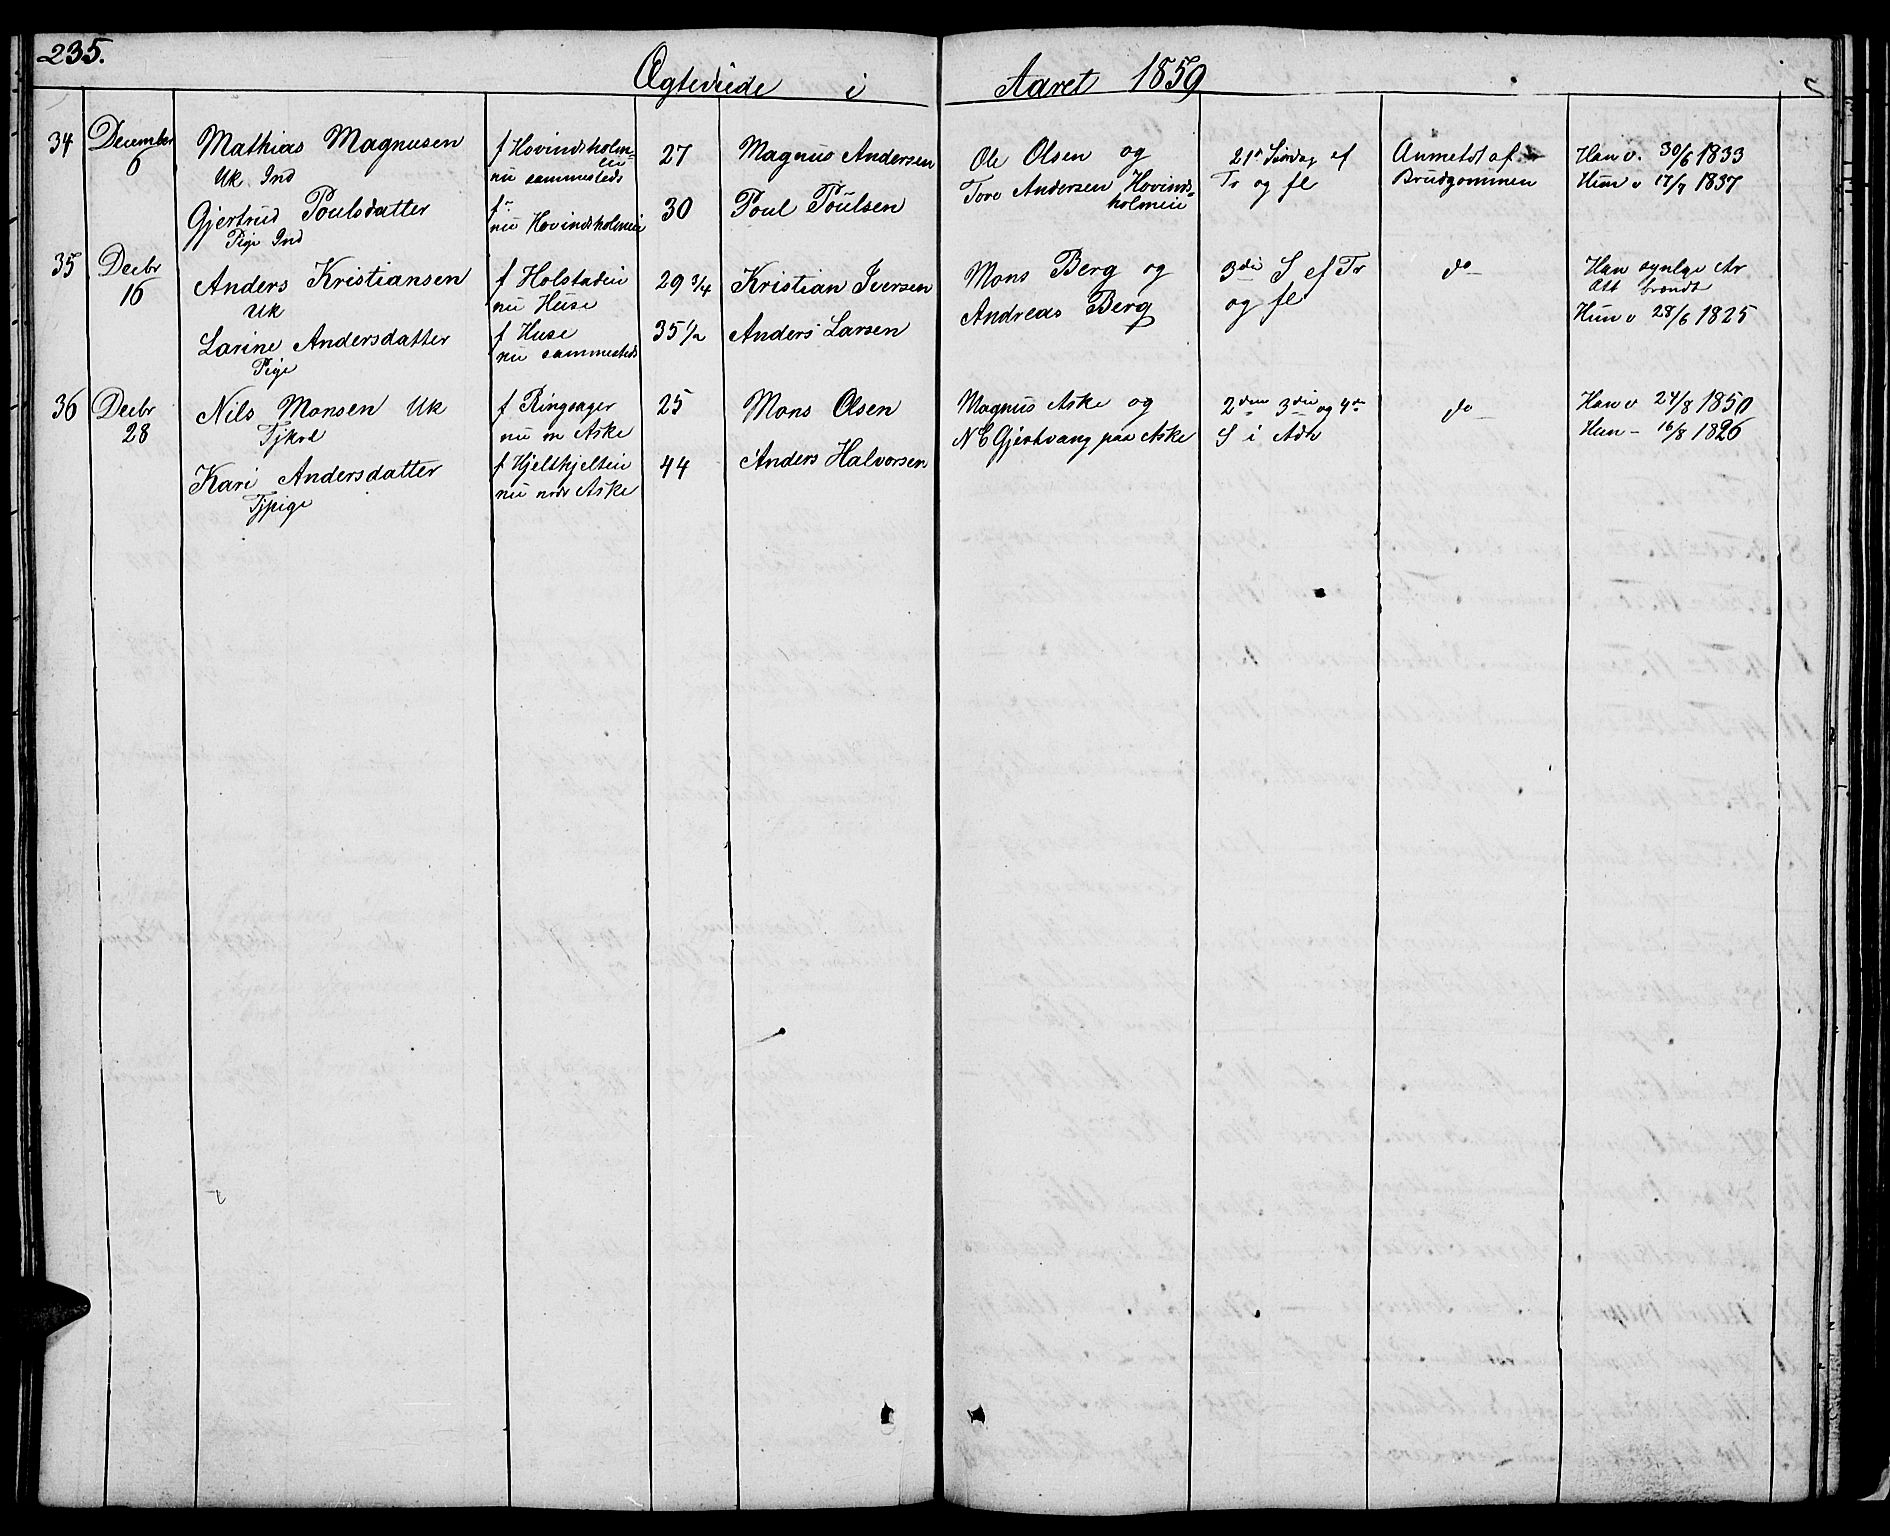 235.
Ægteviede i Aaret 1859
34 December 6 Mathias Magnusen f Hovindsholm- 27 Magnus Andersen Ole Olsen og 21de Søndag ef Anmeldt af Han v. 30/6 1833
Uk Ind eie nu sammesteds Tore Andersen Hovinds- holmeie Tr og fl Brudgommen Hun v 17/7 1837
Gjertrud Poulsdatter f " nu Hovindsholmeie 30 Poul Poulsen
Pige Ind
35 Decbr 16 Anders Kristiansen f Holstadeie 29 3/4 Kristian Iversen Mons Berg og 3die S ef Tr do Han synlge Ar
Uk nu Huse Andreas Berg og fl Att brændt
Larine Andersdatter f Huse 35 1/2 Anders Larsen Hun v 28/6 1825
Pige nu sammesteds
36 Decbr 28 Nils Monsen Uk f Ringsager 25 Mons Olsen Magnus Aske og 2den 3die og 4de do Han v 24/8 1850
Tjkrl nu m Aske N E Gjestvang paa Aske S i Adv Hun - 16/8 1826
Kari Andersdatter f Hjelthjelteie 44 Anders Halvorsen
Tjpige nu nedr Aske